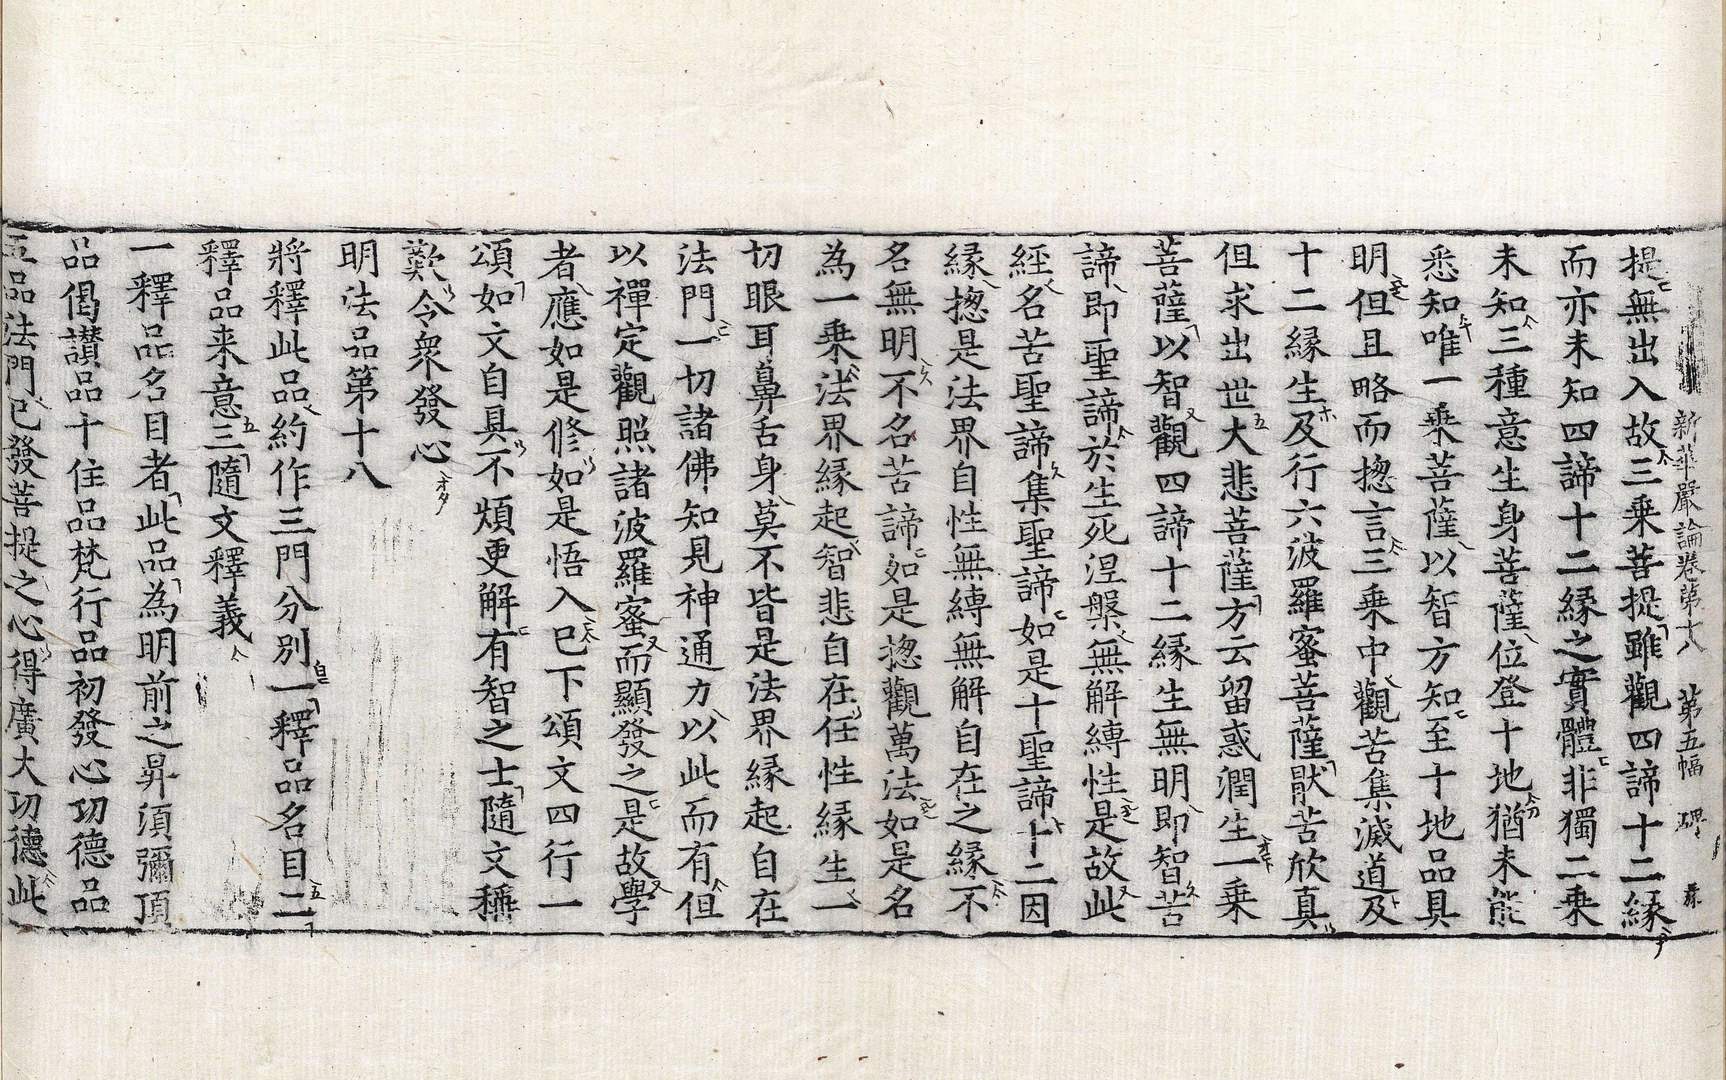 新華嚴論卷第十八 第五幅
提無出入故三乗菩提雖觀四諦十二縁
而亦未知四諦十二縁之實體非獨二乗
未知三種意生身菩薩位登十地猶未能
悉知唯一乗菩薩以智方知至十地品具
明但且略而揔言三乗中觀苦集滅道及
十二縁生及行六波羅蜜菩薩猒苦欣真
但求出世大悲菩薩方云留惑潤生一乗
菩薩以智觀四諦十二縁生無明即智苦
諦即聖諦於生死涅槃無解縛性是故此
經名苦聖諦集聖諦如是十聖諦十二因
縁揔是法界自性無縛無解自在之縁不
名無明不名苦諦如是揔觀萬法如是名
為一乗法界縁起智悲自在任性縁生一
切眼耳鼻舌身莫不皆是法界縁起自在
法門一切諸佛知見神通力以此而有但
以禪定觀照諸波羅蜜而顯發之是故學
者應如是修如是悟入已下頌文四行一
頌如文自具不煩更解有智之士隨文稱
歎令衆發心
明法品第十八
將釋此品約作三門分別一釋品名目二
釋品来意三隨文釋義
一釋品名目者此品為明前之昇須彌頂
品偈讃品十住品梵行品初發心功德品
五品法門已發菩提之心得廣大功德此